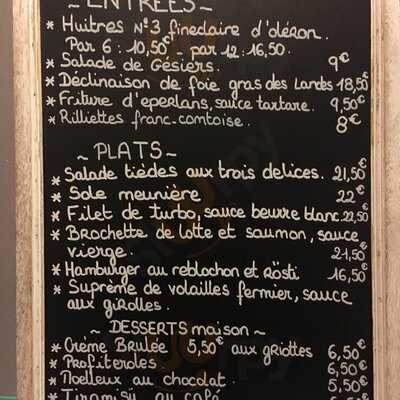 ~ ENTRÉES ~
* Huitres N°3 finedaire d'oléron.
Par 6 : 10,50€ par 12 : 16,50.
* Salade de Gésiers. 9€
* Déclinaison de foie gras des Landes 18,50€
* Friture d'eperlans, sauce tartare. 9,50€
* Rilliettes franc-comtoise. 8€
~ PLATS ~
* Salade tièdes aux trois delices. 21,50€
* Sole meunière 22€
* Filet de turbo, sauce beurre blanc. 22,50€
* Brochette de lotte et saumon, sauce
vierge. 21,50€
* Hamburger au reblochon et Rösti 16,50€
* Suprème de volailles fermier, sauce
aux girolles.
~ DESSERTS maison ~
* Crème Brulée 5,50€ aux griottes 6,50€
* Profiteroles 6,50€
* Moelleux au chocolat. 5,50€
* Tiramisu au café